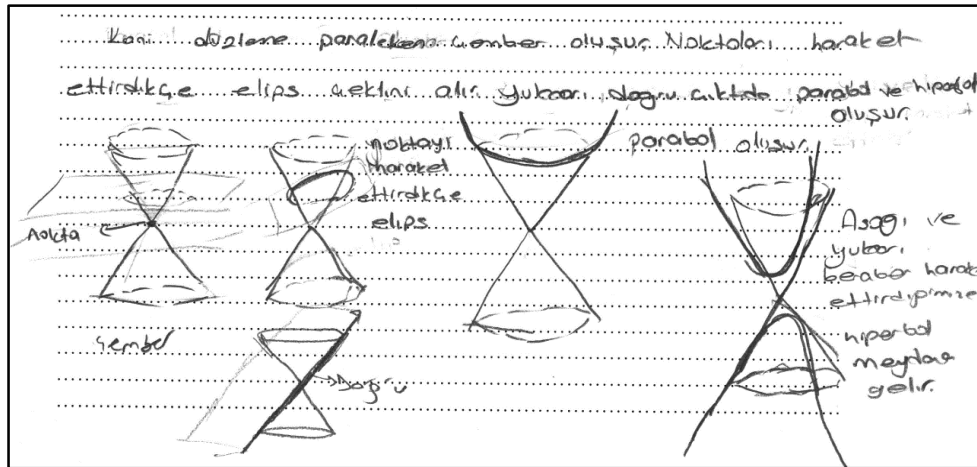 Koni düzleme paralelken çember oluşur. Noktaları haraket
ettirdikçe elips şeklini alır yukarı doğru çıktıda parabol ve hiperbol
oluşur.
noktayı
haraket
ettirdikçe
elips
parabol oluşur.
Nokta
Aşağı ve
yukarı
beraber haraket
ettirdiğimizde
hiperbol
meydana
gelir.
Çember
Doğru